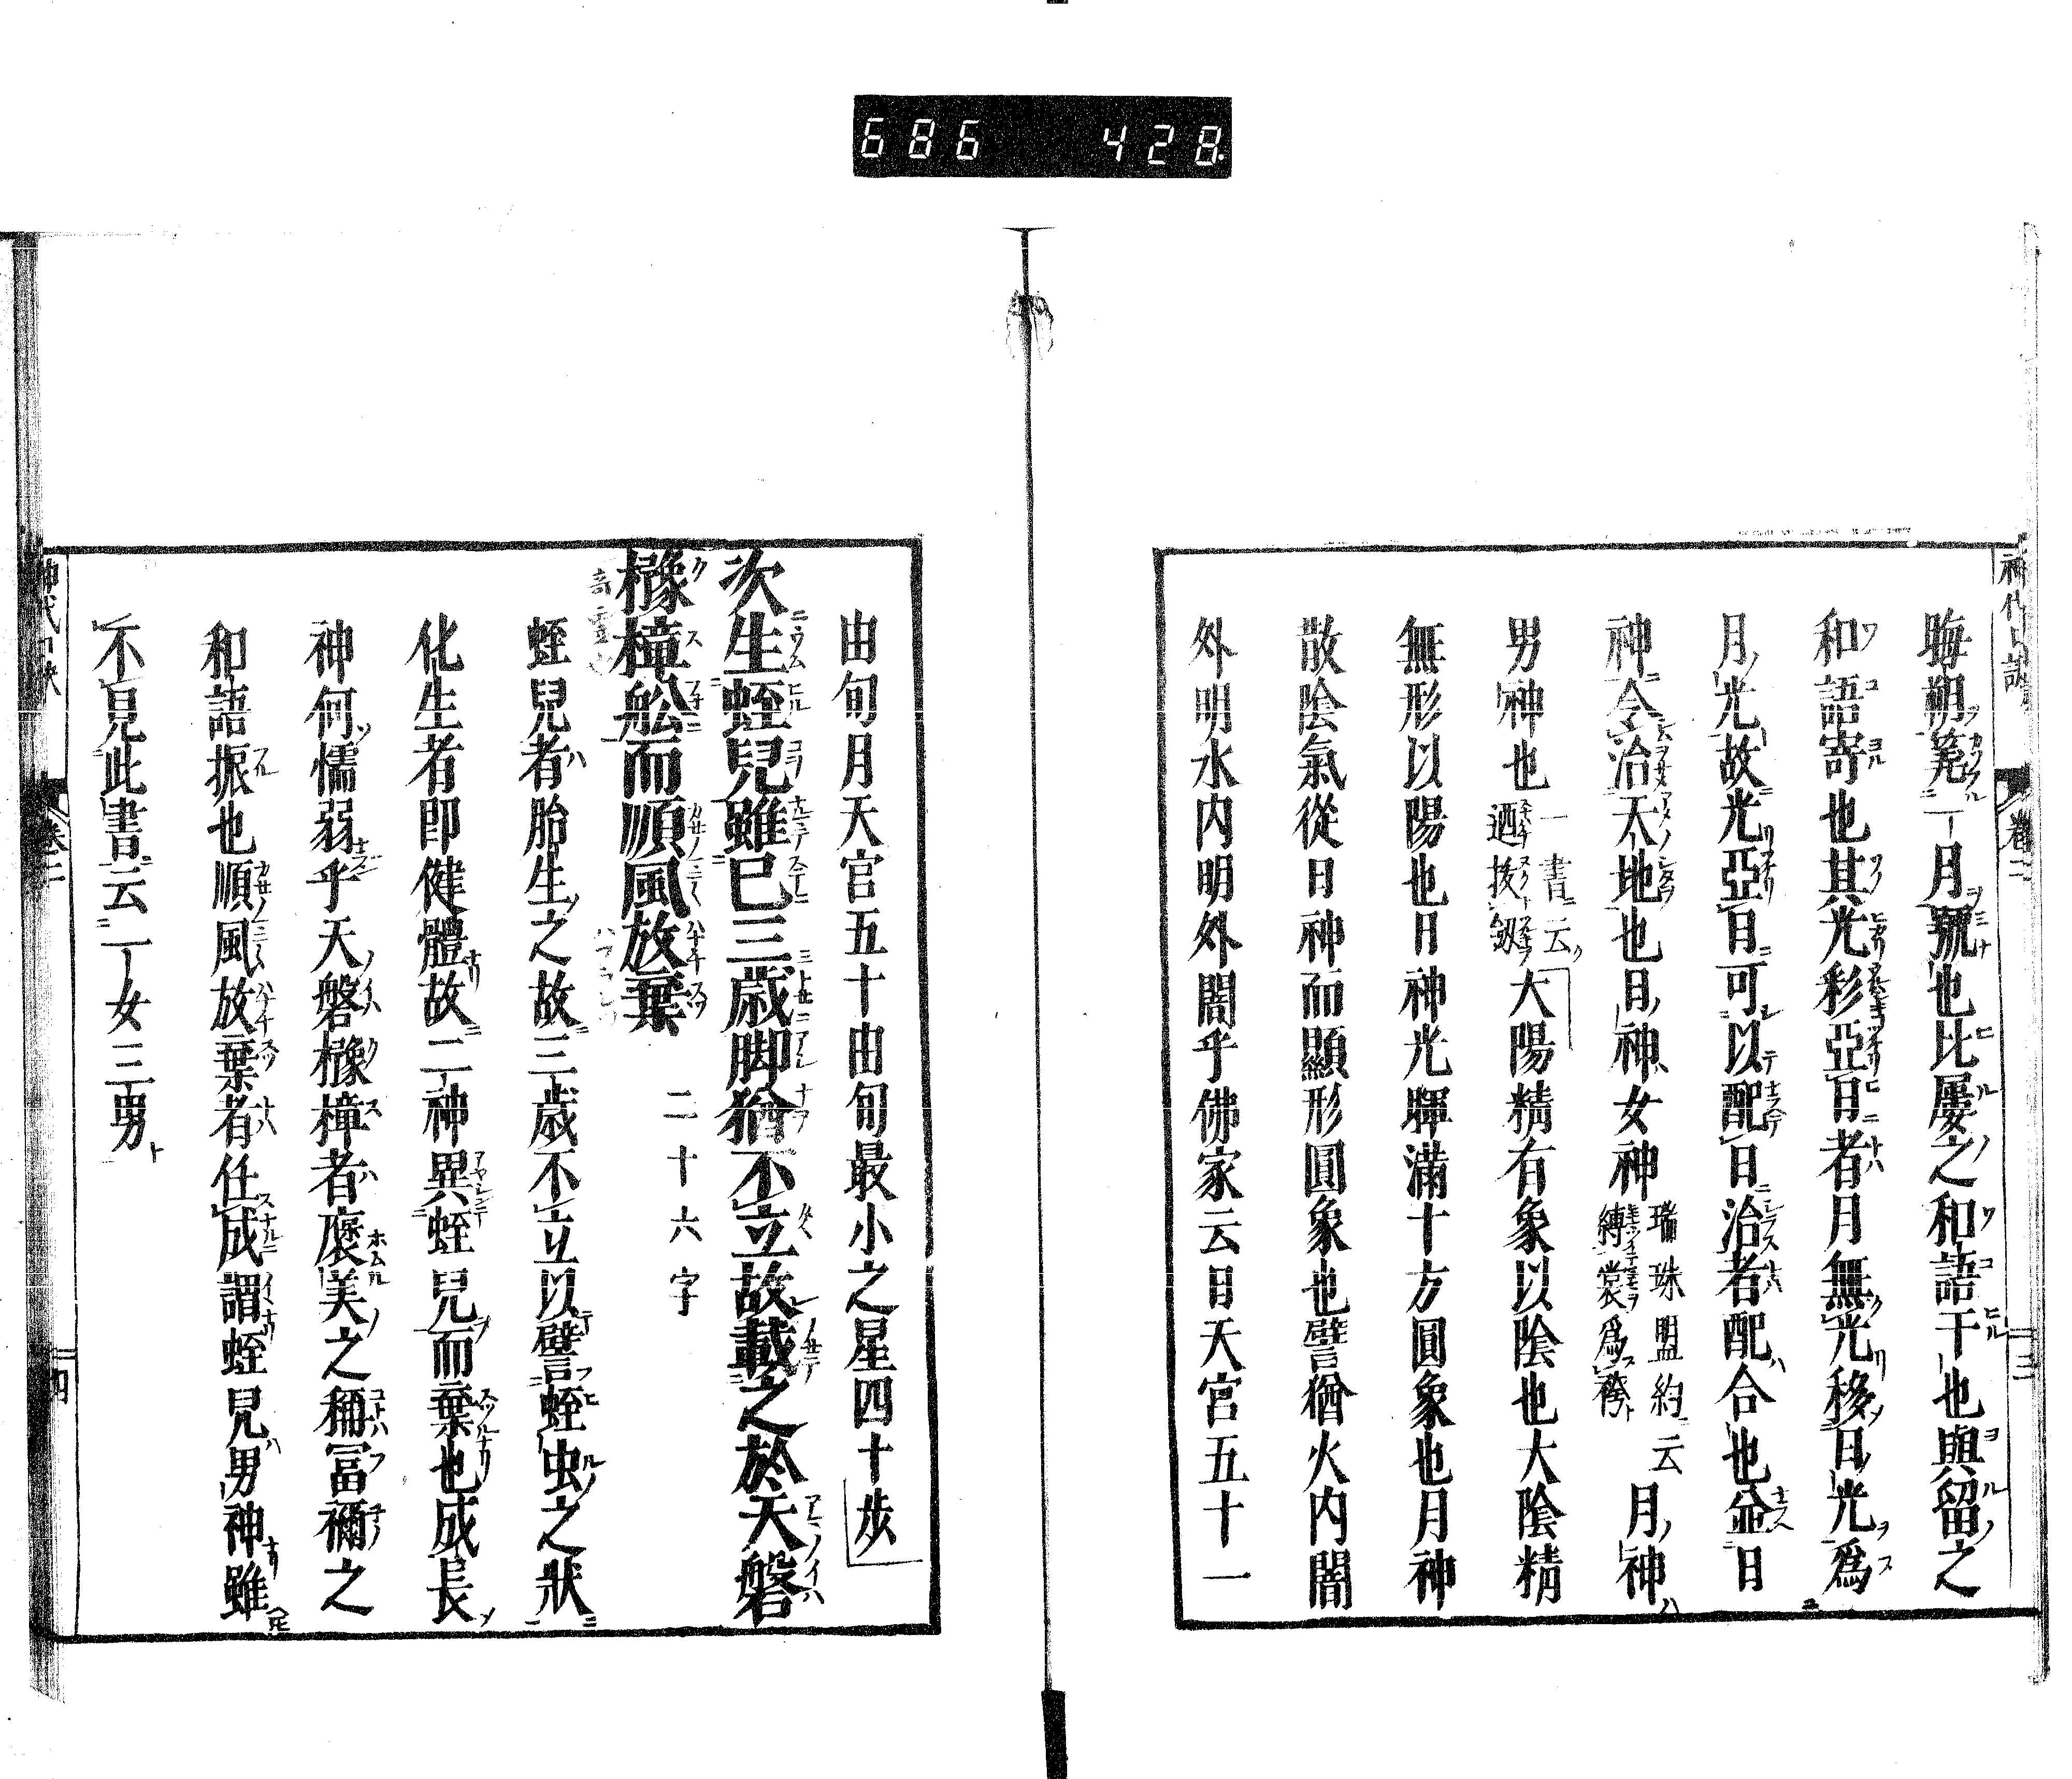 686 428
神代口訣 卷二 三
晦朔篭一月號也比屢之和語干也與留之
和語寄也其光彩亞日者月無光移日光爲
月光故光亞日可以配日治者配合也並日
神令治天地也日神女神瑞珠盟約云縛裳爲袴月神
男神也一書云廼拔劔大陽精有象以陰也大陰精
無形以陽也日神光暉滿十方圓象也月神
散陰氣從日神而顯形圓象也譬猶火内闇
外明水内明外闇乎佛家云日天宮五十一
由旬月天宮五十由旬最小之星四十步
次生蛭兒雖已三歳脚猶不立故載之於天磐
橡樟舩而順風放棄 二十六字
蛭兒者胎生之故三歳不立以譬蛭虫之狀
化生者即健體故二神異蛭兒而棄也成長
神何懦弱乎天磐橡樟者褒美之稱冨禰之
和語振也順風放棄者任成謂蛭兒男神雖
不見此書云一女三男
神代口訣 卷二 四